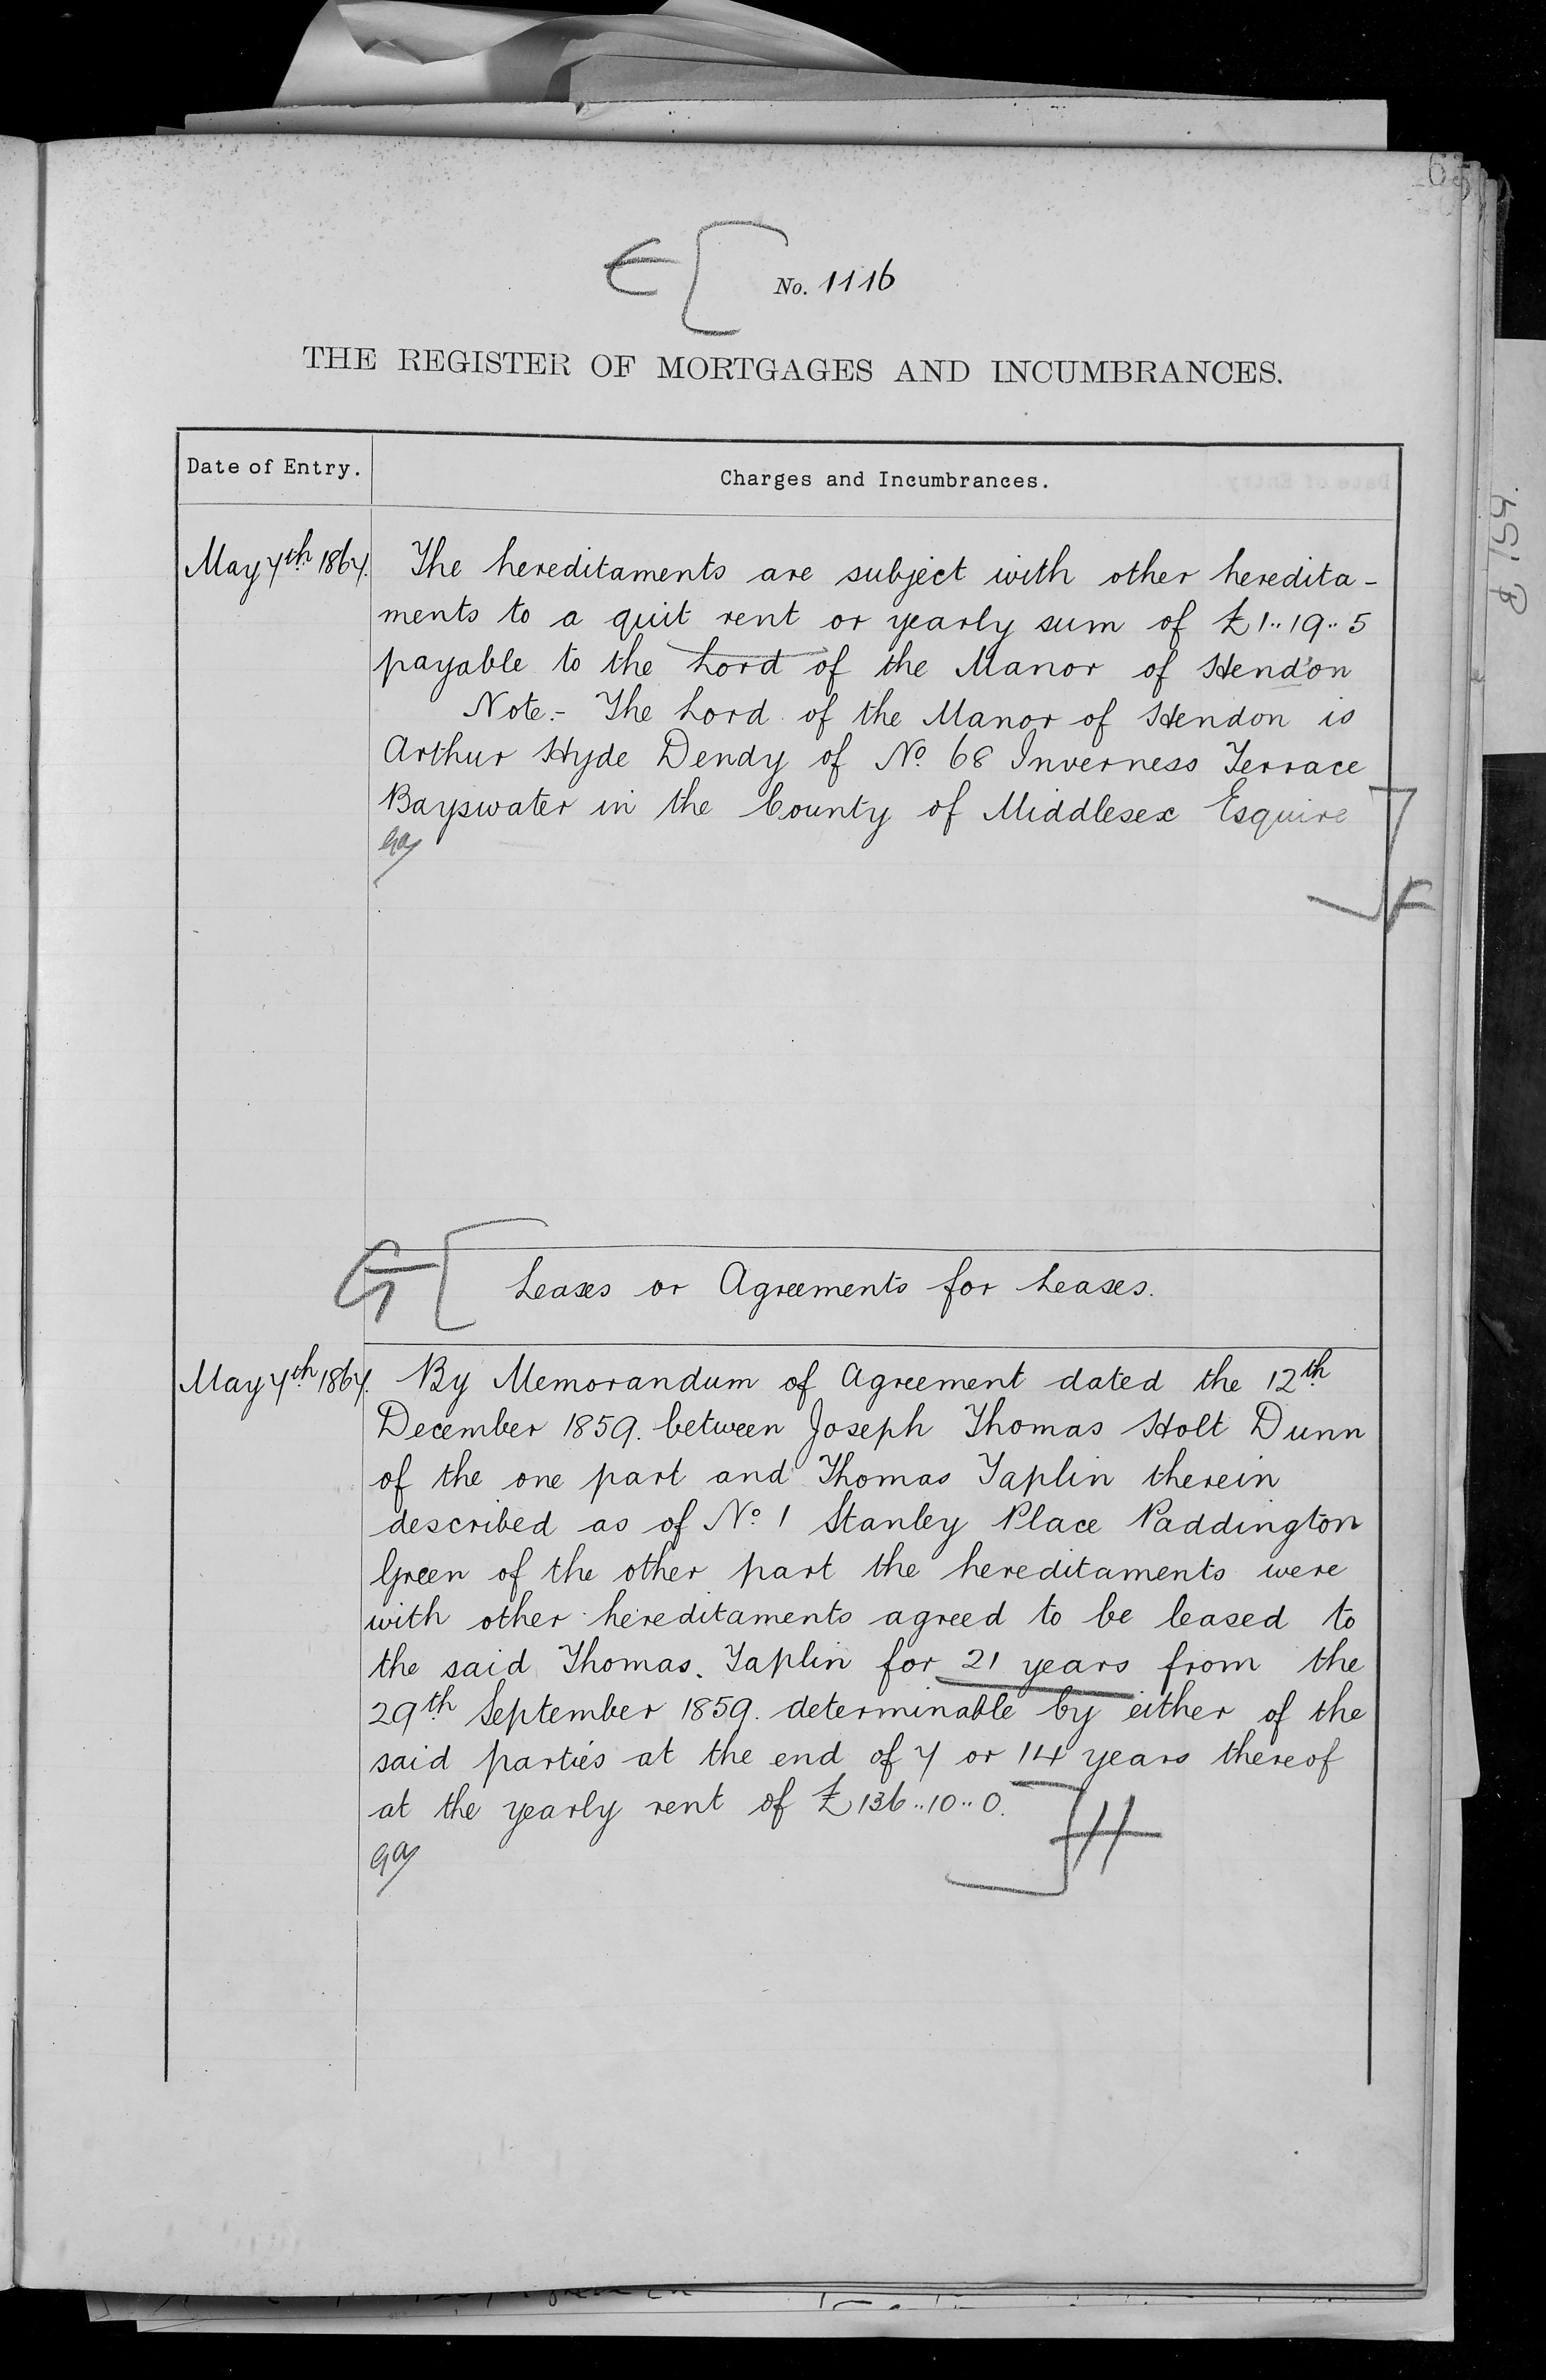 65
E [ No. 1116
THE REGISTER OF MORTGAGES AND INCUMBRANCES.
Date of Entry.
Charges and Incumbrances.
May 7th 1867. The hereditaments are subject with other heredita-
ments to a quit rent or yearly sum of £1..19..5
payable to the Lord of the Manor of Hendon
Note.- The Lord of the Manor of Hendon is
Arthur Hyde Dendy of No. 68 Inverness Terrace
Bayswater in the County of Middlesex Esquire
] F
G [ Leases or Agreements for Leases.
May 7th 1867. By Memorandum of Agreement dated the 12th
December 1859. between Joseph Thomas Holt Dunn
of the one part and Thomas Taplin therein
described as of No. 1 Stanley Place Paddington
Green of the other part the hereditaments were
with other hereditaments agreed to be leased to
the said Thomas. Taplin for 21 years from the
29th September 1859. determinable by either of the
said parties at the end of 7 or 14 years thereof
at the yearly rent of £136..10..0.
] H